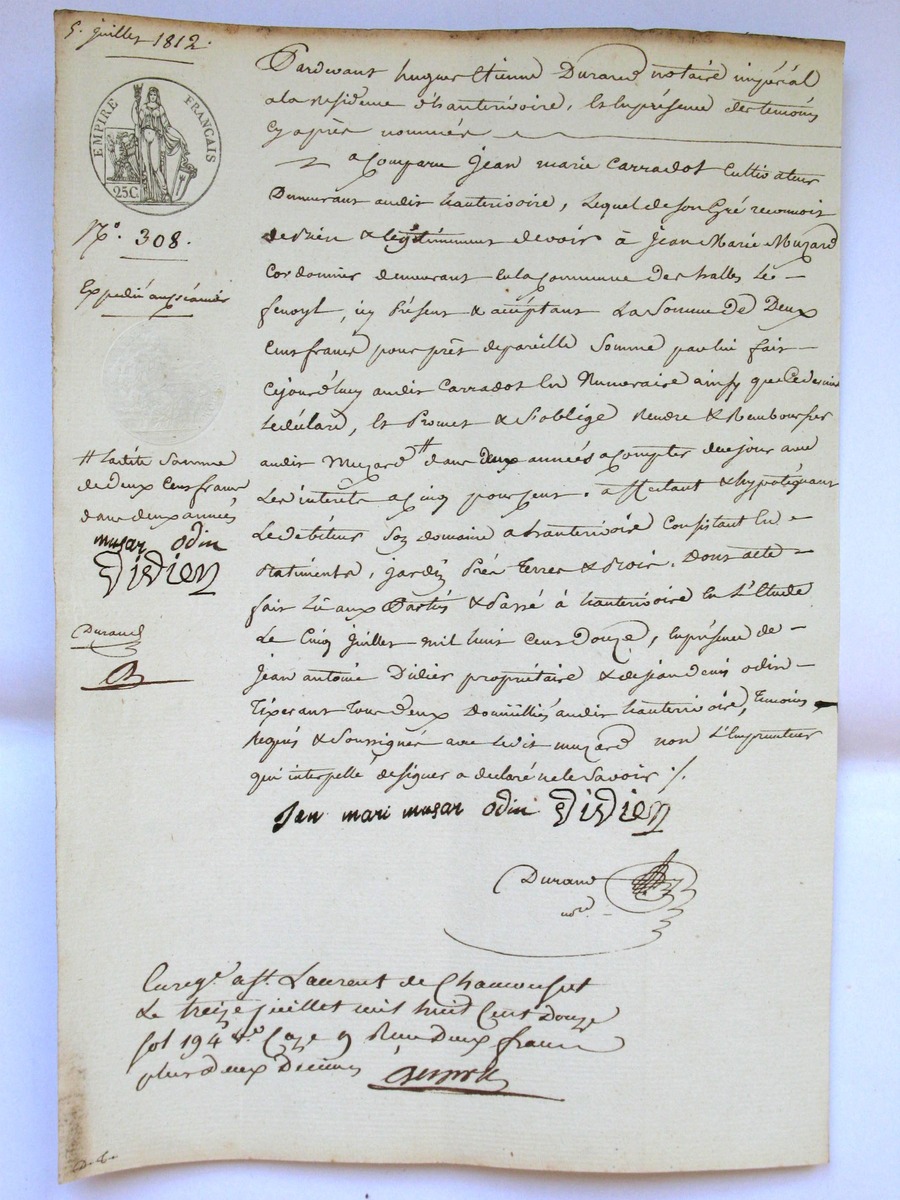 5. juillet 1812.
EMPIRE FRANÇAIS
25 C.
N.° 308.
Expedié au créancier
# ladite Somme
de deux Cens francs
dans deux années
musar odin
Didier
Durand
Pardevant hugues Etienne Durand notaire impérial
a la Residence d'hauterivoire, & en présence des temoins
Cy après nommés
a Comparu Jean marie Carradot Cultivateur
Demeurant audit hauterivoire, Lequel de son Gré reconnoit
de bien & légitimement devoir à Jean Marie Muzard
Cordonnier demeurant en la Commune des halles Le
fenoyl, icy Présent & acceptant La Somme De Deux
Cens francs pour prêt de pareille Somme par lui fait
Cejourd'huy audit Carradot En Numeraire ainsy que Ce dernier
Le déclare, Et Promet & S'oblige Rendre & Rembourser
audit Muzard # dans deux années a Compter de ce jour avec
Les interets a Cinq pour Cent. affectant & hypotéquant
Le debiteur Son domaine a hauterivoire Consistant En
Batiments, jardin Prés Terres & Bois. Dont acte
fait Lû aux Parties & Passé à hauterivoire En L'Etude
Le Cinq juillet mil huit Cens Douze, En présence de
jean antoine Didier propriétaire & de jean denis odin
Tixerant Tous deux Domiciliés audit hauterivoire, Temoins
Requis & Soussignés avec Ledit muzard non L'Emprunteur
qui interpellé de signer a declaré ne le Savoir ./.
Jan mari musar odin Didier
Durand
nore
Enreg.é a St. Laurent de Chamousset
Le treize juillet mil huit Cent Douze
fol 194 Case 9 Recu Deux francs
plus Deux Decimes